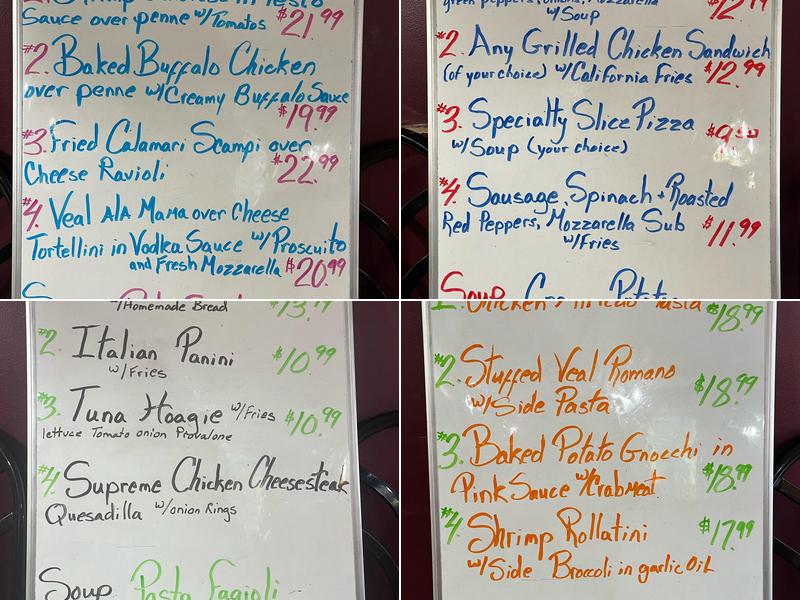 Sauce over penne w/Tomatos $21.99
#2. Baked Buffalo Chicken
over penne w/Creamy Buffalo Sauce
$19.99
#3. Fried Calamari Scampi over
Cheese Ravioli $22.99
#4. Veal ALA Mama over Cheese
Tortellini in Vodka Sauce w/Proscuito
and Fresh Mozzarella $20.99
green peppers, onions, Mozzarella
w/Soup $12.99
#2. Any Grilled Chicken Sandwich
(of your choice) w/California Fries $12.99
#3. Specialty Slice Pizza
w/Soup (your choice)
#4. Sausage, Spinach + Roasted
Red Peppers, Mozzarella Sub
w/Fries $11.99
Soup
w/Homemade Bread $13.99
#2. Italian Panini
w/Fries $10.99
#3. Tuna Hoagie w/Fries $10.99
lettuce Tomato onion Provalone
#4. Supreme Chicken Cheesesteak
Quesadilla w/onion Rings
Soup Pasta Fagioli
Chicken Alfredo Pasta $18.99
#2. Stuffed Veal Romano
w/Side Pasta $18.99
#3. Baked Potato Gnocchi in
Pink Sauce w/Crabmeat $18.99
#4 Shrimp Rollatini $17.99
w/Side Broccoli in garlic OiL